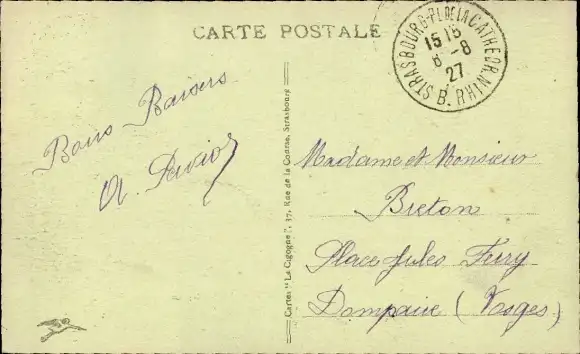 CARTE POSTALE
STRASBOURG-PL. DE LA CATHEDR. B. RHIN
15 15
8 -8
27
Bons Baisers
Madame et Monsieur
Breton
Place Jules Ferry
Dompaire (Vosges)
Cartes "La Cigogne", 37, Rue de la Course, Strasbourg